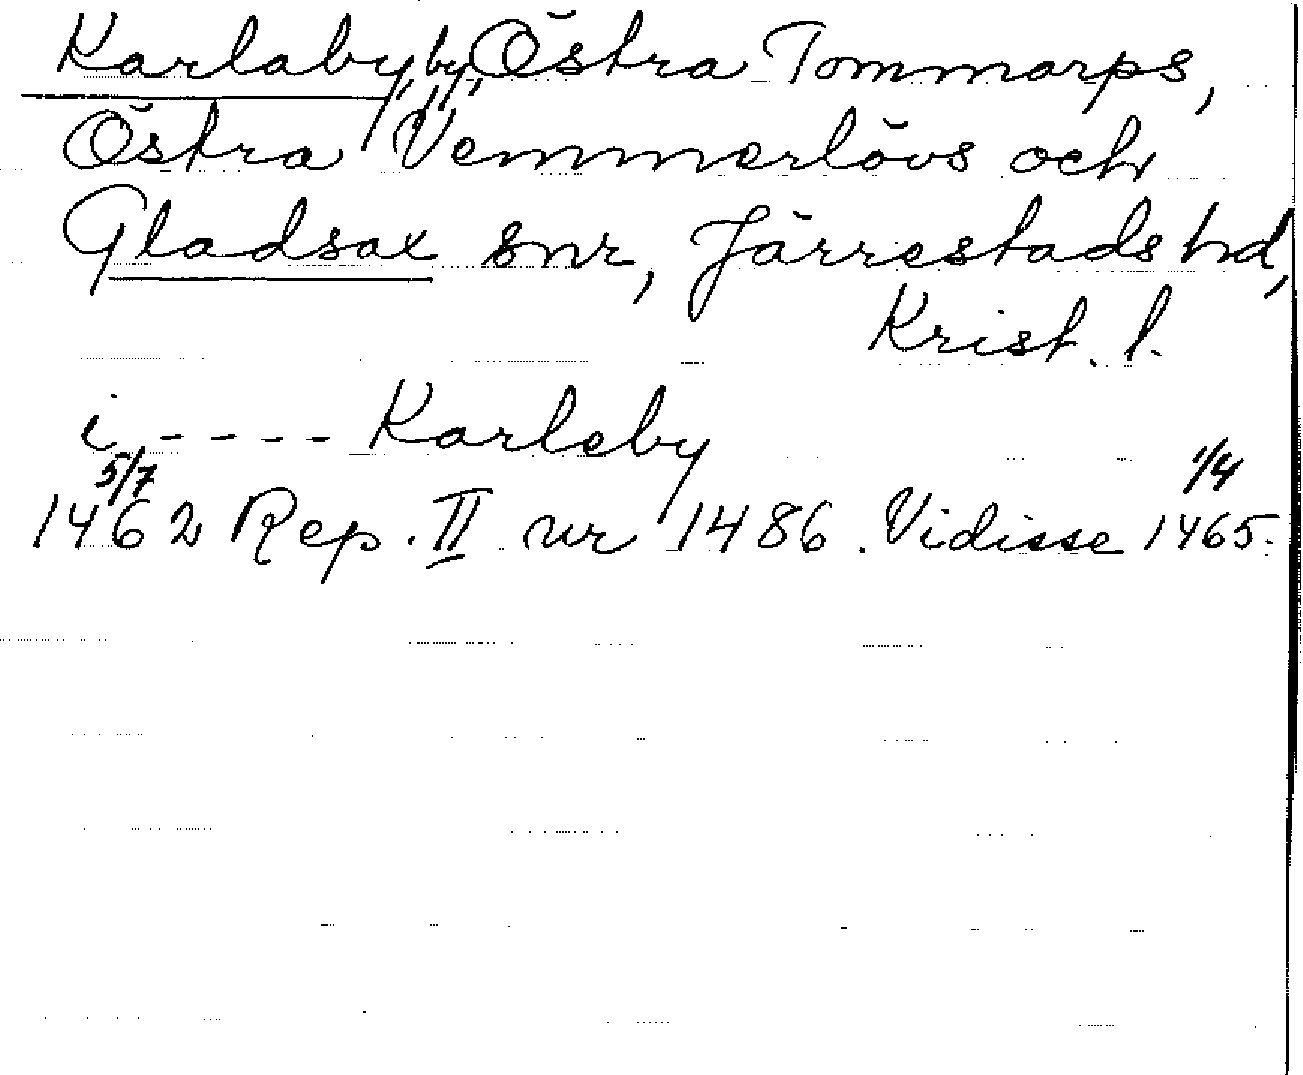 Karlaby, by, Östra Tommarps,
Östra Vemmerlövs och
Gladsax snr, Järrestads hd,
Krist. l.
i ---- Karleby
5/7 1/4
1462 Rep. II nr 1486. Vidisse 1465.